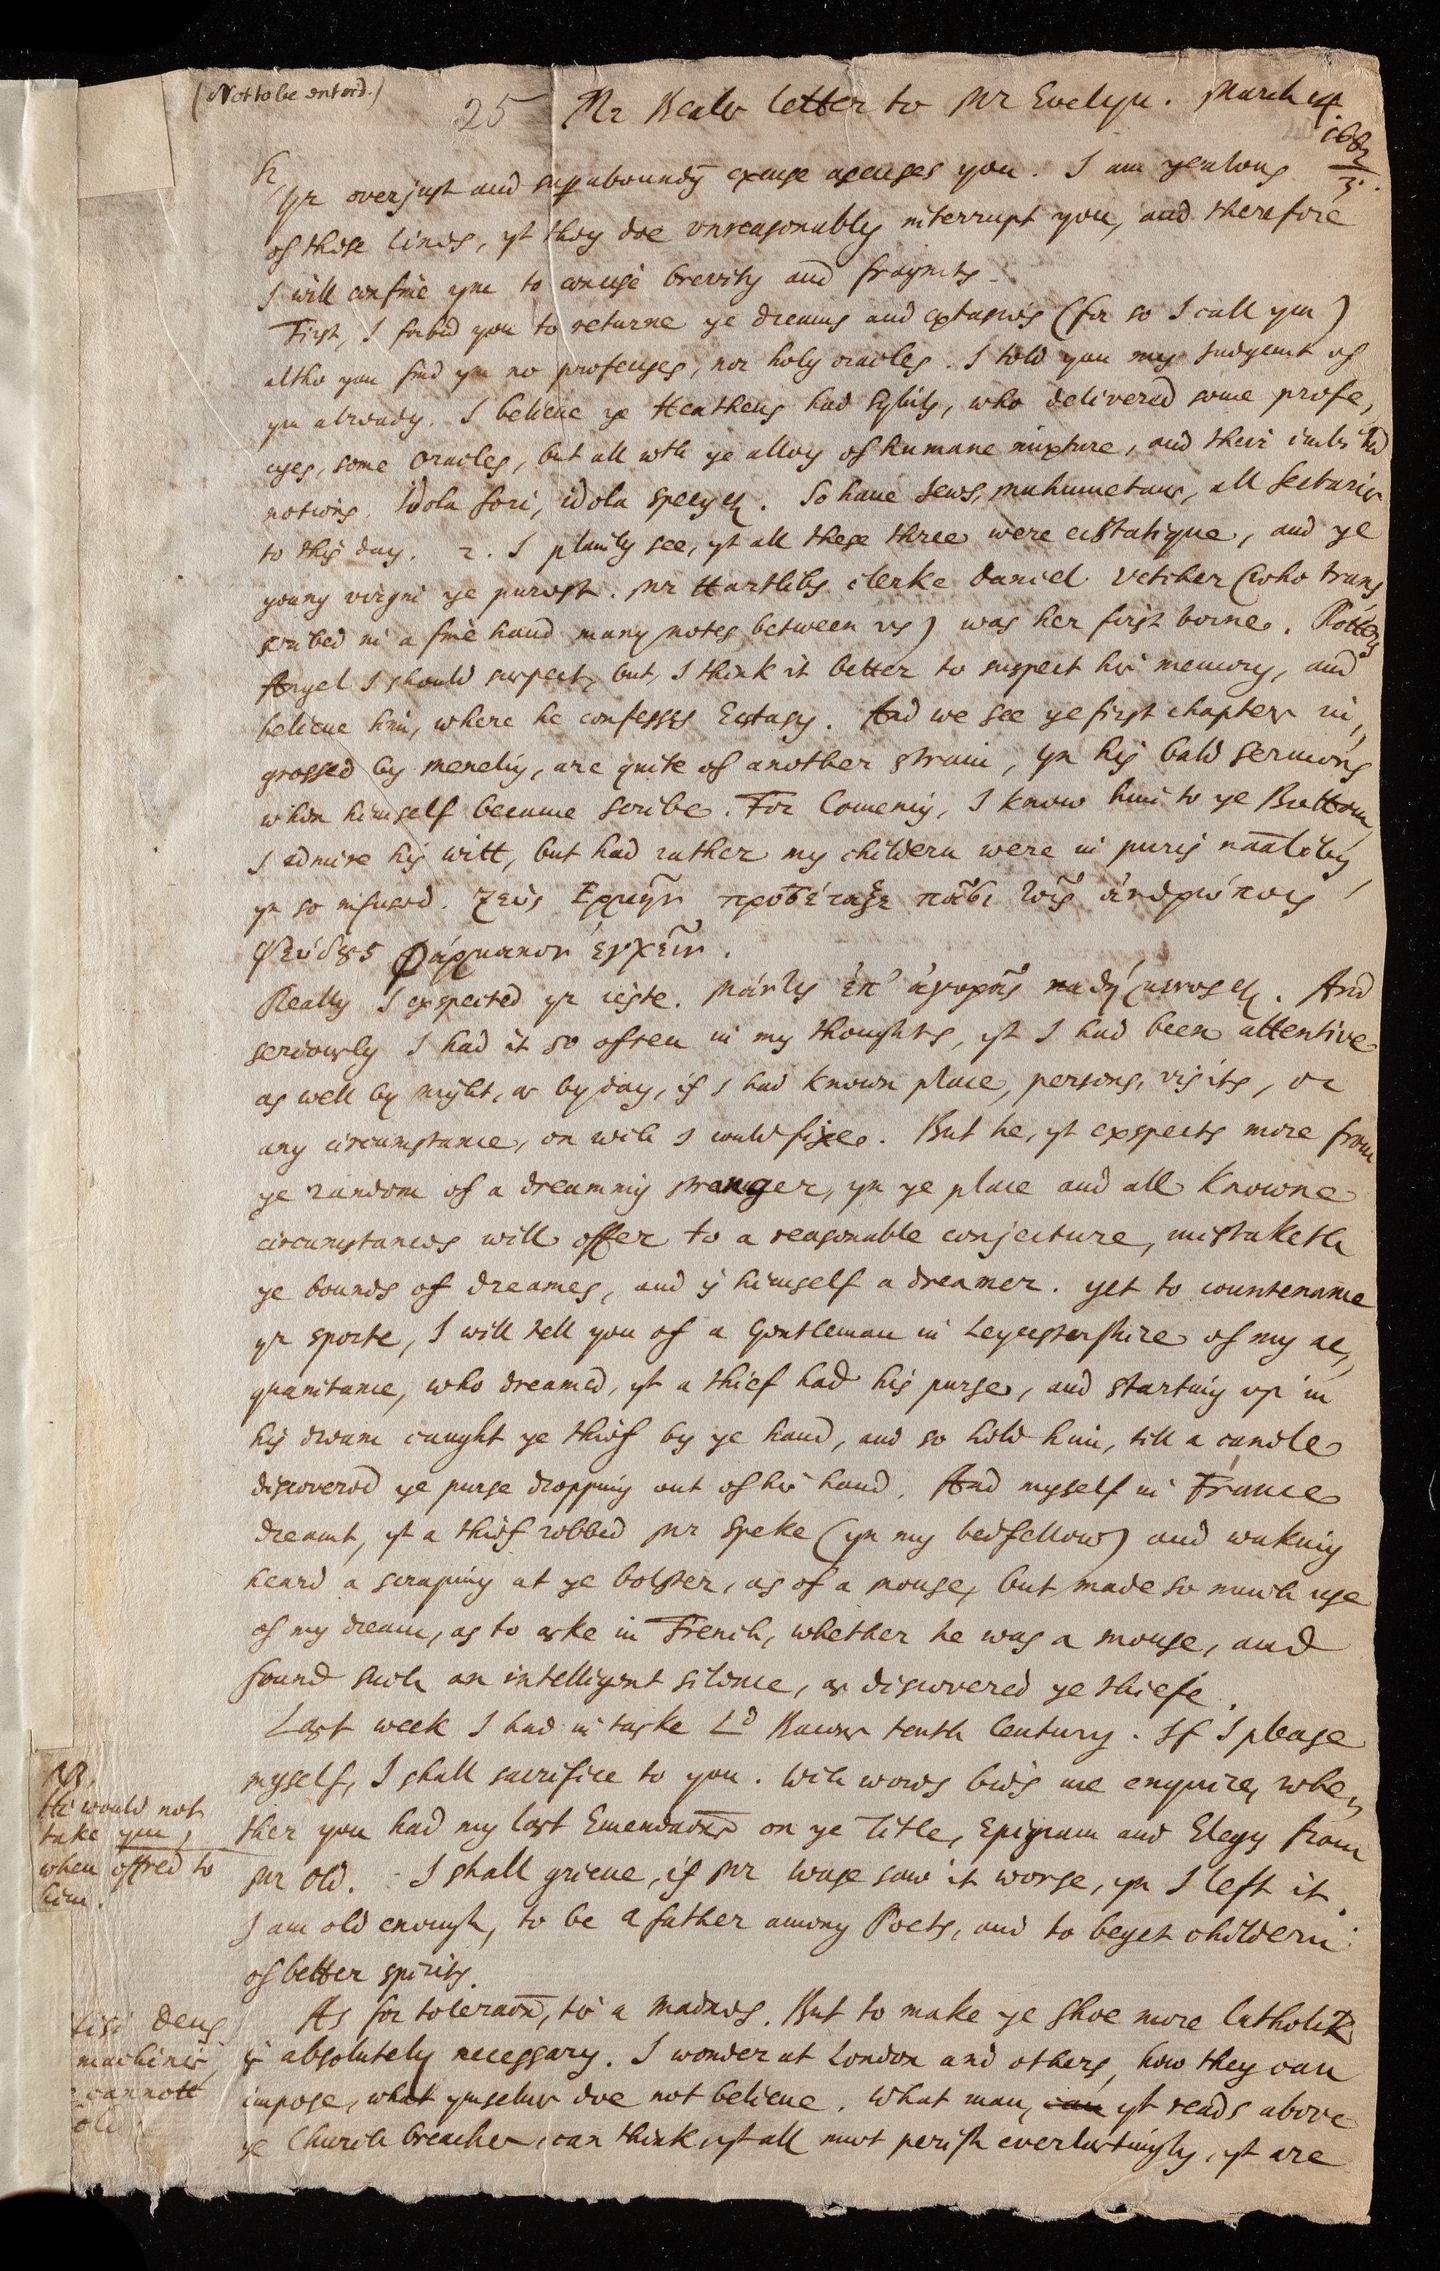 (Not to be enterd.)
25 Mr Beals letter to Mr Evelyn. March 14
1682/3.
Sr
Yr overjust and supabounding excuse accuses you. I am yealous
of those lines, yt they doe vnreasonably interrupt you, and therefore
I will confine ym to concise brevity and fragmts.
First, I forbid you to returne ye dreams and extasies (for so I call ym)
altho you find ym no profesyes, nor holy oracles. I told you my Judgemt of
ym already. I belieue ye Heathens had Sybils, who delivered some profe,
cyes, some Oracles, but all wth ye alloy of humane mixture, and their imbibed
notions. Idola fori, idola specus &c. So haue Jews, Mahumetans, all Sectaries
to this day. 2. I plainly see, yt all these three were ecstatique, and ye
young virgin ye purest. Mr Hartlibs clerke Daniel (who trans,
scribed in a fine hand many notes between us) was her first borne. Potters
Angel I should suspect, but, I think it better to suspect his memory, and
belieue him, where he confesses Ecstasy. And we see ye first chapters in,,
grossed by , are quite of another strain, yn his bald sermons
when himself became scribe. For Comenius, I know him to ye Buttom,
I admire his witt, but had rather my childern were in puris naalibus,
yn so infused. Ζεὺς Ἑρμῆν προσέταξε πᾶσι τοῖς ἀνθρώποις
ψεύδους φάρμακον ἐγχεῖν.
Really I expected yr ieste. Μάντις ἐπ' ἀγορῆς καθήμενος &c. And
seriously I had it so often in my thoughts, yt I had been attentive
as well by night, as by day, if I had known place, persons, visits, or
any circumstance, on wch I could fixe. But he, yt expects more from
ye random of a dreaming stranger, yn ye place and all knowne
circumstances will offer to a reasonable conjecture, mistaketh
ye bounds of dreames, and is himself a dreamer. yet to countenance
yr sporte, I will tell you of a Gentleman in Leycestershire of my ac,,
quaintance, who dreamed, yt a thief had his purse, and starting up in
his dream caught ye thief by ye hand, and so held him, till a candle
discovered ye purse dropping out of his hand. And myself in France
dreamt, yt a thief robbed Mr Speke (yn my bedfellow) and waking
heard a scraping at ye bolster, as of a mouse, but made so much use
of my dream, as to aske in French, whether he was a mouse, and
found such an intelligent silence, as discovered ye thiefe.
Last week I had in taske Ld Bacons tenth Century. If I please
myself, I shall sacrifice to you. Wch words bids me enquire, whe,,
ther you had my last Emendaons on ye Title, Epigram and Elegy from
Mr Old. I shall grieue, if Mr Wase saw it worse, yn I left it.
I am old enough, to be a father among Poets, and to beget childern
of better spirits.
NB.
He would not
take ym,
when offred to
him.
As for toleraon, tis a madnes. But to make ye Shoe more Catholik
is absolutely necessary. I wonder at London and others, how they can
impose, what ymselves doe not belieue. What man, can yt reads above
ye Church breaches, can think yt all must perish everlastingly, yt are
Deus
machinis,
cannott